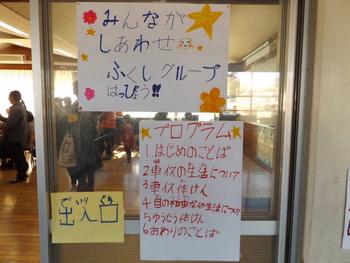 みんなが
しあわせ
ふくしグループ
はっぴょう!!
プログラム
1.はじめのことば
2車イスの生活について
3車イス体けん
4目の不自由な人の生活について
5ゆうどう体けん
6おわりのことば
でいりぐち
出入口